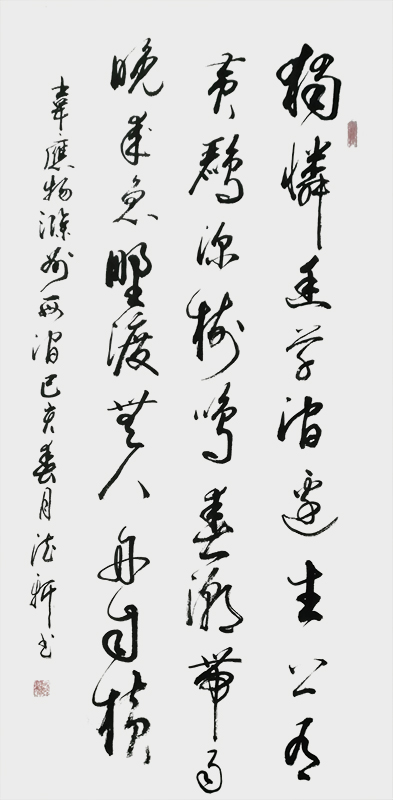 獨憐幽草澗邊生上有
黄鸝深樹鳴春潮帶雨
晚來急野渡無人舟自横
韋應物滁州西澗己亥春月軒书